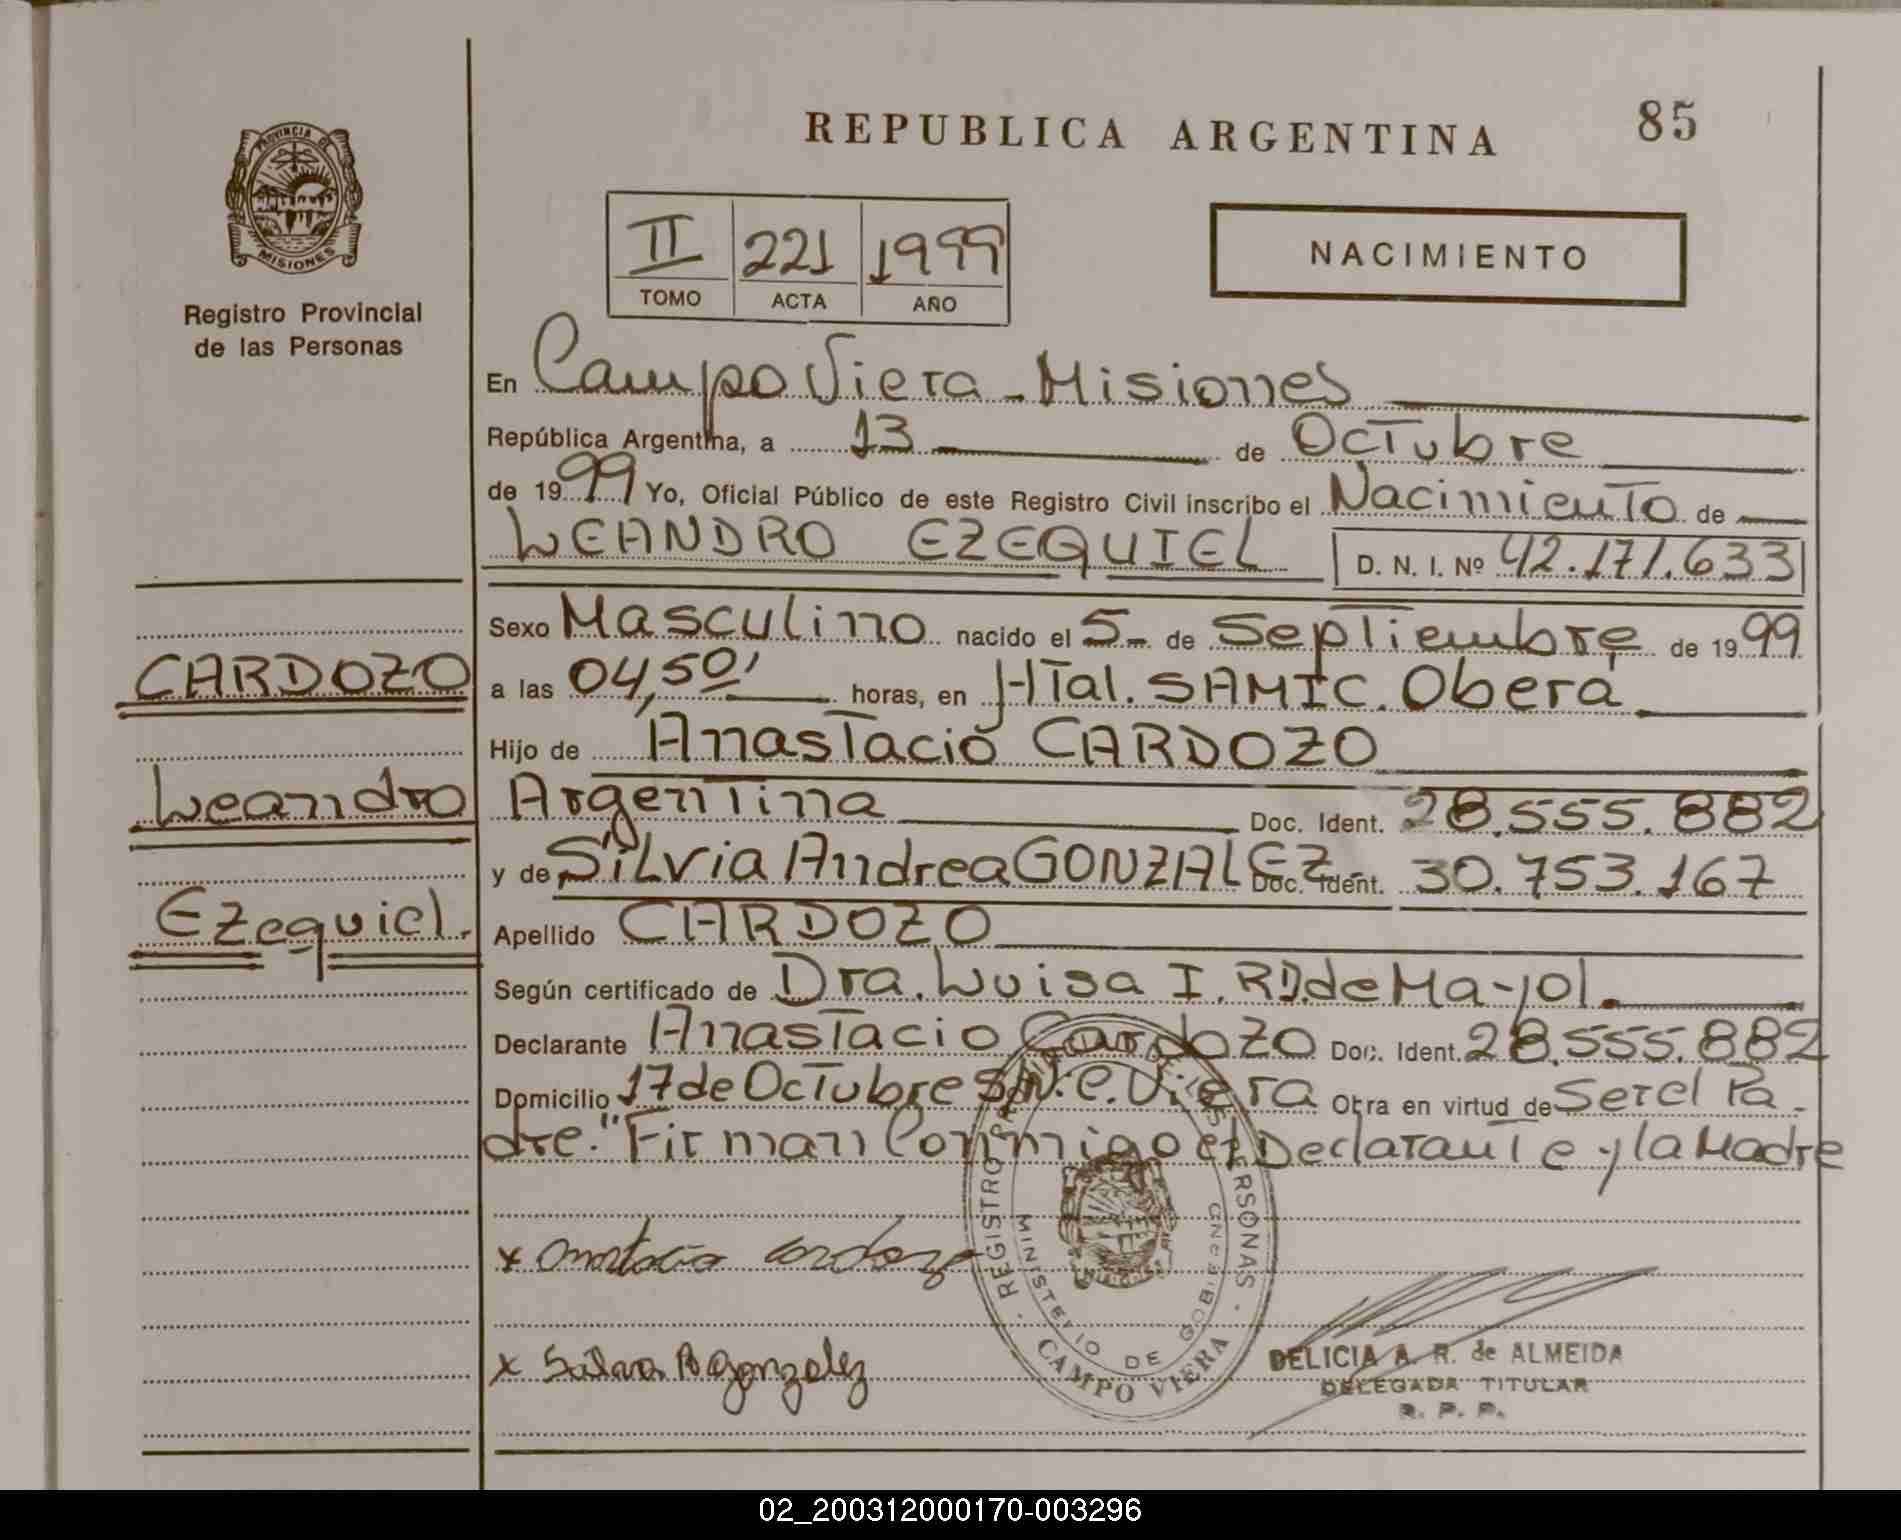 PROVINCIA DE
MISIONES
Registro Provincial
de las Personas
CARDOZO
Leandro
Ezequiel.
REPUBLICA ARGENTINA
85
II 221 1999
TOMO ACTA AÑO
NACIMIENTO
En Campo Viera - Misiones
República Argentina, a 13 de Octubre
de 1999 Yo, Oficial Público de este Registro Civil inscribo el Nacimiento de
LEANDRO EZEQUIEL D. N. I. Nº 42.171.633
Sexo Masculino nacido el 5- de Septiembre de 1999
a las 04,50' horas, en HTal. SAMIC. Oberá
Hijo de Anastacio CARDOZO
Argentina Doc. Ident. 28.555.882
y de Silvia Andrea GONZALEZ- Doc. Ident. 30.753.167
Apellido CARDOZO
Según certificado de Dra. Luisa I. R.D. de Mayol
Declarante Anastacio Cardozo Doc. Ident. 28.555.882
Domicilio 17 de Octubre S/N. C. Viera Obra en virtud de Ser el Pa-
dre." Firman Conmigo el Declarante y la Madre
x Anastacio Cardozo
x Silvia A Gonzalez
REGISTRO PERSONAS
MINISTERIO DE GOBIERNO
CAMPO VIERA
DELICIA A. R. de ALMEIDA
DELEGADA TITULAR
R. P. P.
02_200312000170-003296